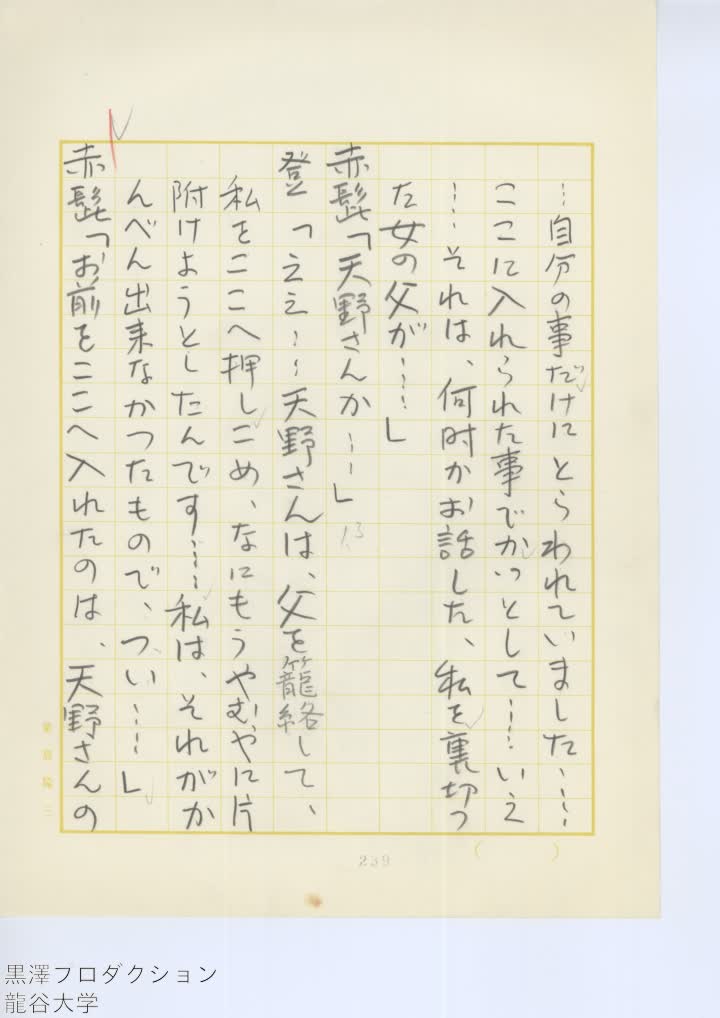 …自分の事だけにとらわれていました、……
ここに入れられた事でかつとして……いえ
……それは、何時かお話した、私を裏切つ
た女の父が……」
赤髭「天野さんか……」
登「ええ……天野さんは、父を籠絡して、
私をここへ押しこめ、なにもうやむやに片
附けようとしたんです……私は、それがか
んべん出来なかつたもので、つい……」
赤髭「お前をここへ入れたのは、天野さんの
239
黒澤プロダクション
龍谷大学